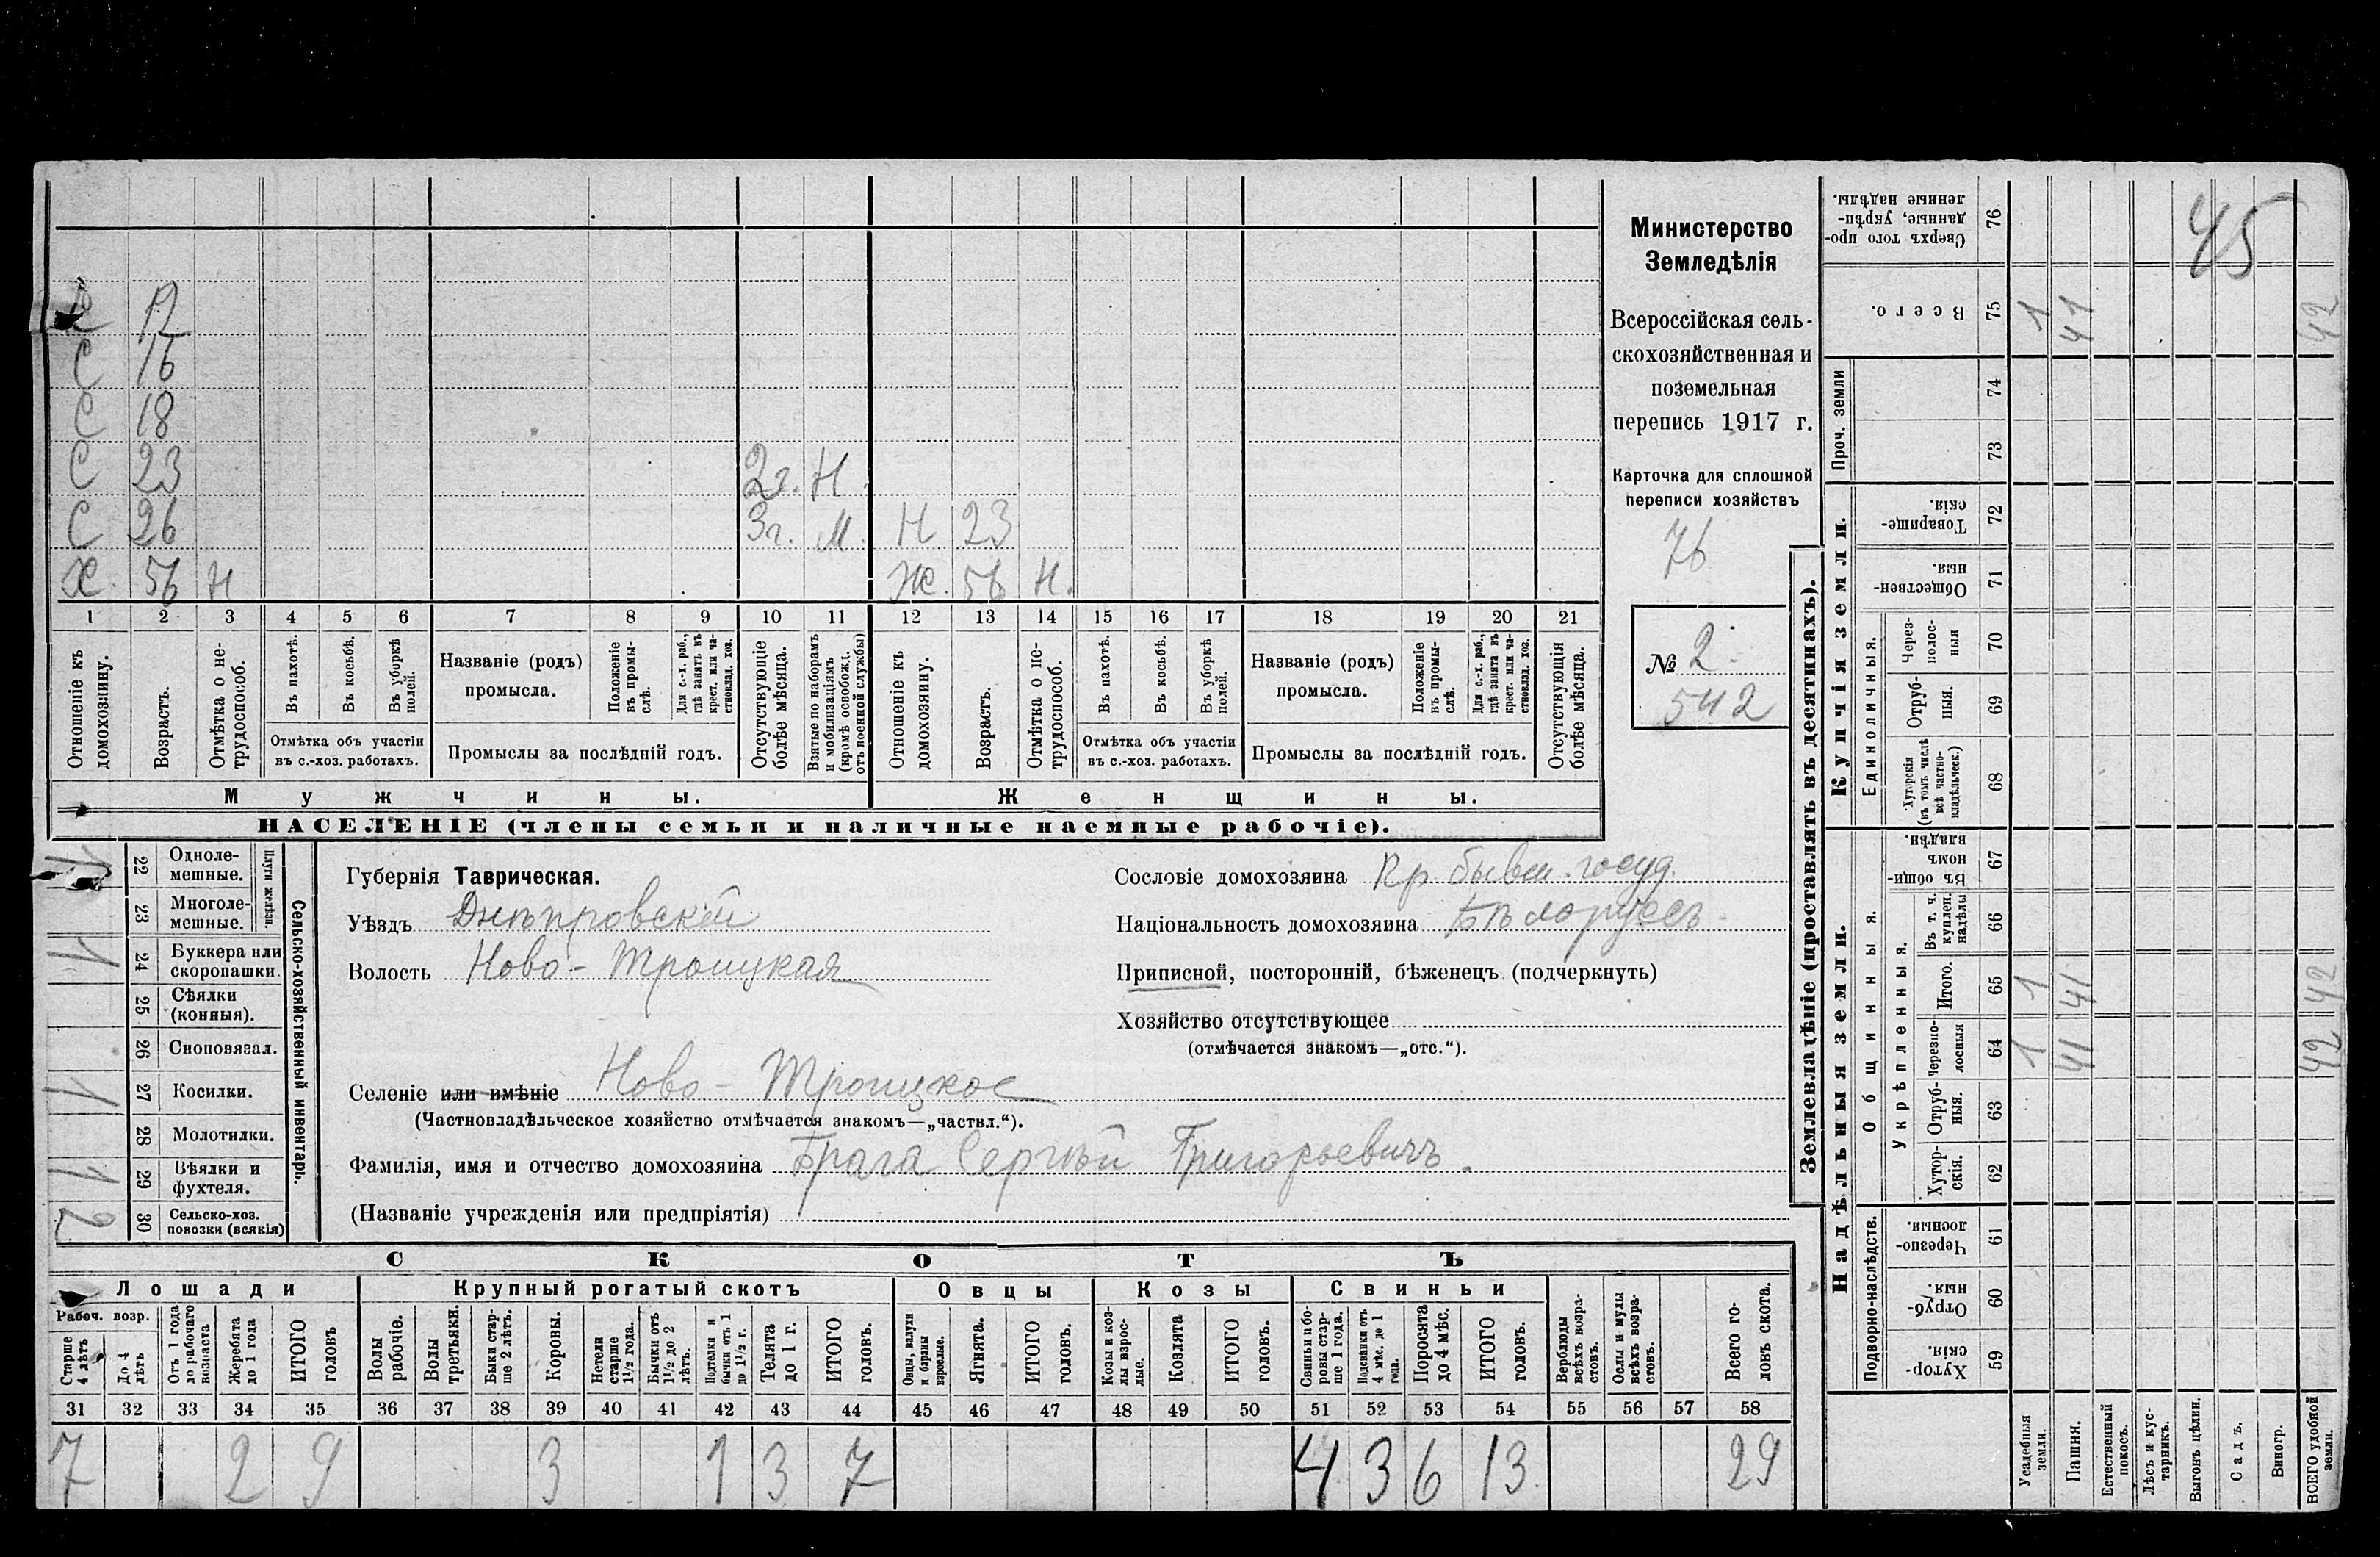 С 12
С 16
С 18
С 23 2 г. Н.
С 26 3 г. М. Н 23
Х. 56 Н Ж. 56 Н.
1 2 3 4 5 6 7 8 9 10 11 12 13 14 15 16 17 18 19 20 21
Отношеніе къ домохозяину.
Возрастъ.
Отмѣтка о нетрудоспособ.
Въ пахотѣ.
Въ косьбѣ.
Въ уборкѣ полей.
Отмѣтка объ участіи въ с.-хоз. работахъ.
Названіе (родъ) промысла.
Положеніе въ промыслѣ.
Для с.-х. раб., гдѣ занятъ въ крест. или частновлад. хоз.
Промыслы за послѣдній годъ.
Отсутствующіе болѣе мѣсяца.
Взятые по наборамъ и мобилизаціямъ (кромѣ освобожд. отъ военной службы)
Отношеніе къ домохозяину.
Возрастъ.
Отмѣтка о нетрудоспособ.
Въ пахотѣ.
Въ косьбѣ.
Въ уборкѣ полей.
Отмѣтка объ участіи въ с.-хоз. работахъ.
Названіе (родъ) промысла.
Положеніе въ промыслѣ.
Для с.-х. раб., гдѣ занята въ крест. или частновлад. хоз.
Промыслы за послѣдній годъ.
Отсутствующія болѣе мѣсяца.
Мужчины.
Женщины.
НАСЕЛЕНІЕ (члены семьи и наличные наемные рабочіе).
Министерство
Земледѣлія
Всероссійская сель-
скохозяйственная и
поземельная
перепись 1917 г.
Карточка для сплошной
переписи хозяйствъ
76
№ 2.
542
Сельско-хозяйственный инвентарь.
Плуги желѣзн.
1 22 Однолемешные.
23 Многолемешные.
1 24 Буккера или скоропашки.
25 Сѣялки (конныя).
26 Сноповязал.
1 27 Косилки.
28 Молотилки.
1 29 Вѣялки и фухтеля.
2 30 Сельско-хоз. повозки (всякія)
Губернія Таврическая.
Уѣздъ Днѣпровскій
Волость Ново-Троицкая
Селеніе или имѣніе Ново-Троицкое
(Частновладѣльческое хозяйство отмѣчается знакомъ—„частвл.“).
Фамилія, имя и отчество домохозяина Брага Сергѣй Григорьевичъ.
(Названіе учрежденія или предпріятія)
Сословіе домохозяина Кр. бывш. госуд.
Національность домохозяина Бѣлоруссъ
Приписной, посторонній, бѣженецъ (подчеркнуть)
Хозяйство отсутствующее
(отмѣчается знакомъ—„отс.“).
СКОТЪ
Лошади
Крупный рогатый скотъ
Овцы
Козы
Свиньи
Рабоч. возр.
Старше 4 лѣтъ
До 4 лѣтъ
Отъ 1 года до рабочаго возраста
Жеребята до 1 года
ИТОГО головъ
Волы рабочіе.
Волы третьяки.
Быки старше 2 лѣтъ.
Коровы.
Нетели старше 1½ года.
Бычки отъ 1½ до 2 лѣтъ.
Подтелки и бычки отъ 1 до 1½ г.
Телята до 1 г.
ИТОГО головъ.
Овцы, валухи и бараны взрослые.
Ягнята.
ИТОГО головъ.
Козы и козлы взрослые.
Козлята
ИТОГО головъ.
Свиньи и боровы старше 1 года.
Подсвинки отъ 4 мѣс. до 1 года.
Поросята до 4 мѣс.
ИТОГО головъ.
Верблюды всѣхъ возрастовъ.
Ослы и мулы всѣхъ возрастовъ.
Всего головъ скота.
31 32 33 34 35 36 37 38 39 40 41 42 43 44 45 46 47 48 49 50 51 52 53 54 55 56 57 58
7 2 9 3 1 3 7 4 3 6 13 29
Землевладѣніе (проставлять въ десятинахъ).
Надѣльныя земли.
Купчія земли.
Проч. земли
Подворно-наслѣдств.
Общинныя.
Укрѣпленныя.
Единоличныя.
76 Сверхъ того проданные, укрѣпленные надѣлы.
75 Всего. 1 41 42
74
73
72 Товарищескія.
71 Общественныя.
70 Черезполосныя
69 Отрубныя.
68 Хуторскія (въ томъ числѣ всѣ частновладѣльческ.)
67 Въ общинномъ владѣн.
66 Въ т. ч. куплен. надѣлы
65 Итого. 1 41 42
64 Черезполосныя 1 41 42
63 Отрубныя.
62 Хуторскія.
61 Черезполосныя.
60 Отрубныя.
59 Хуторскія.
45
Усадебныя земли.
Пашня.
Естественный покосъ.
Лѣсъ и кустарникъ.
Выгонъ цѣлин.
Садъ.
Виногр.
ВСЕГО удобной земли.